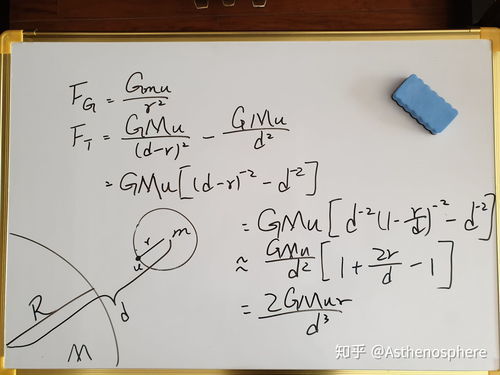 F_G = Gmu/r²
F_T = GMu/(d-r)² - GMu/d²
= GMu[(d-r)⁻² - d⁻²]
= GMu[d⁻²(1-r/d)⁻² - d⁻²]
≈ GMu/d² [1 + 2r/d - 1]
= 2GMur/d³
r
m
u
R
d
M
知乎 @Asthenosphere